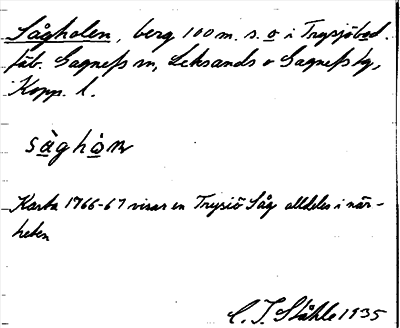 Sågholen, berg 100 m. s. o i Trysjöbod.
fäb. Gagnefs sn, Leksands o Gagnefs tg,
Kopp. l.
såghòɴ
Karta 1766-67 visar en Trysiö Såg alldeles i när-
heten
C. I. Ståhle 1935